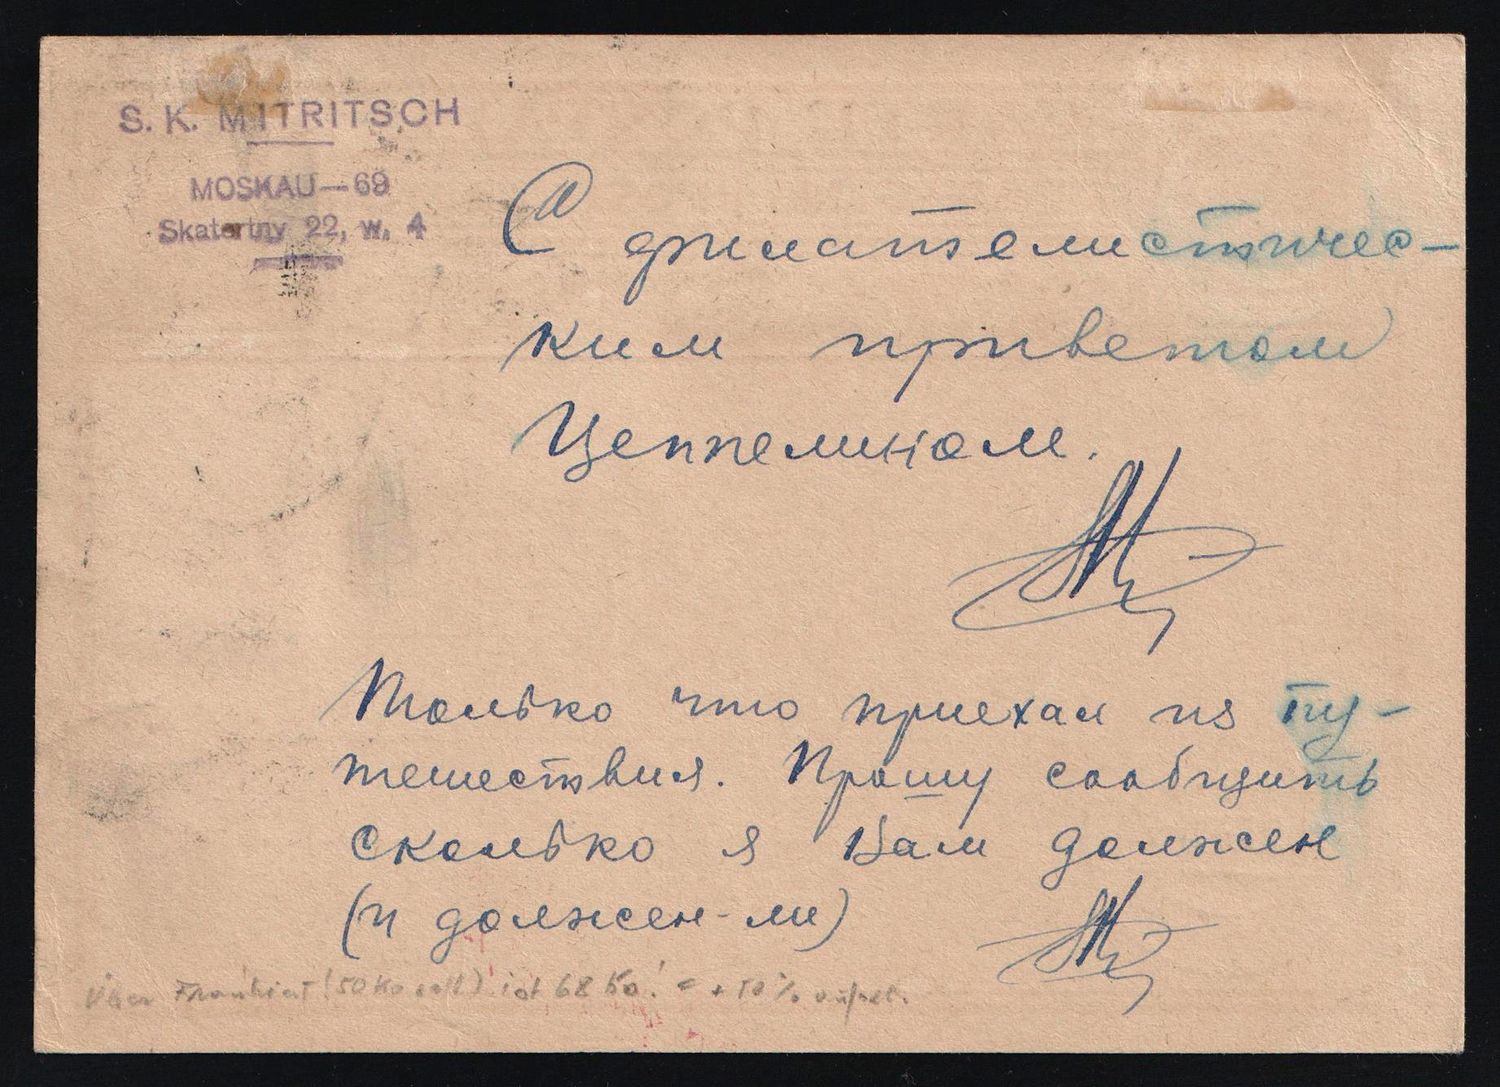 S. K. MITRITSCH
MOSKAU—69
Skatertny 22, w. 4
С филателистичес-
ким приветом
Цеппелином.
Только что приехал из пу-
тешествия. Прошу сообщить
сколько я Вам должен
(и должен-ли)
Über Frankiert (50 Ko soll) ist 68 Ko! = + 50%